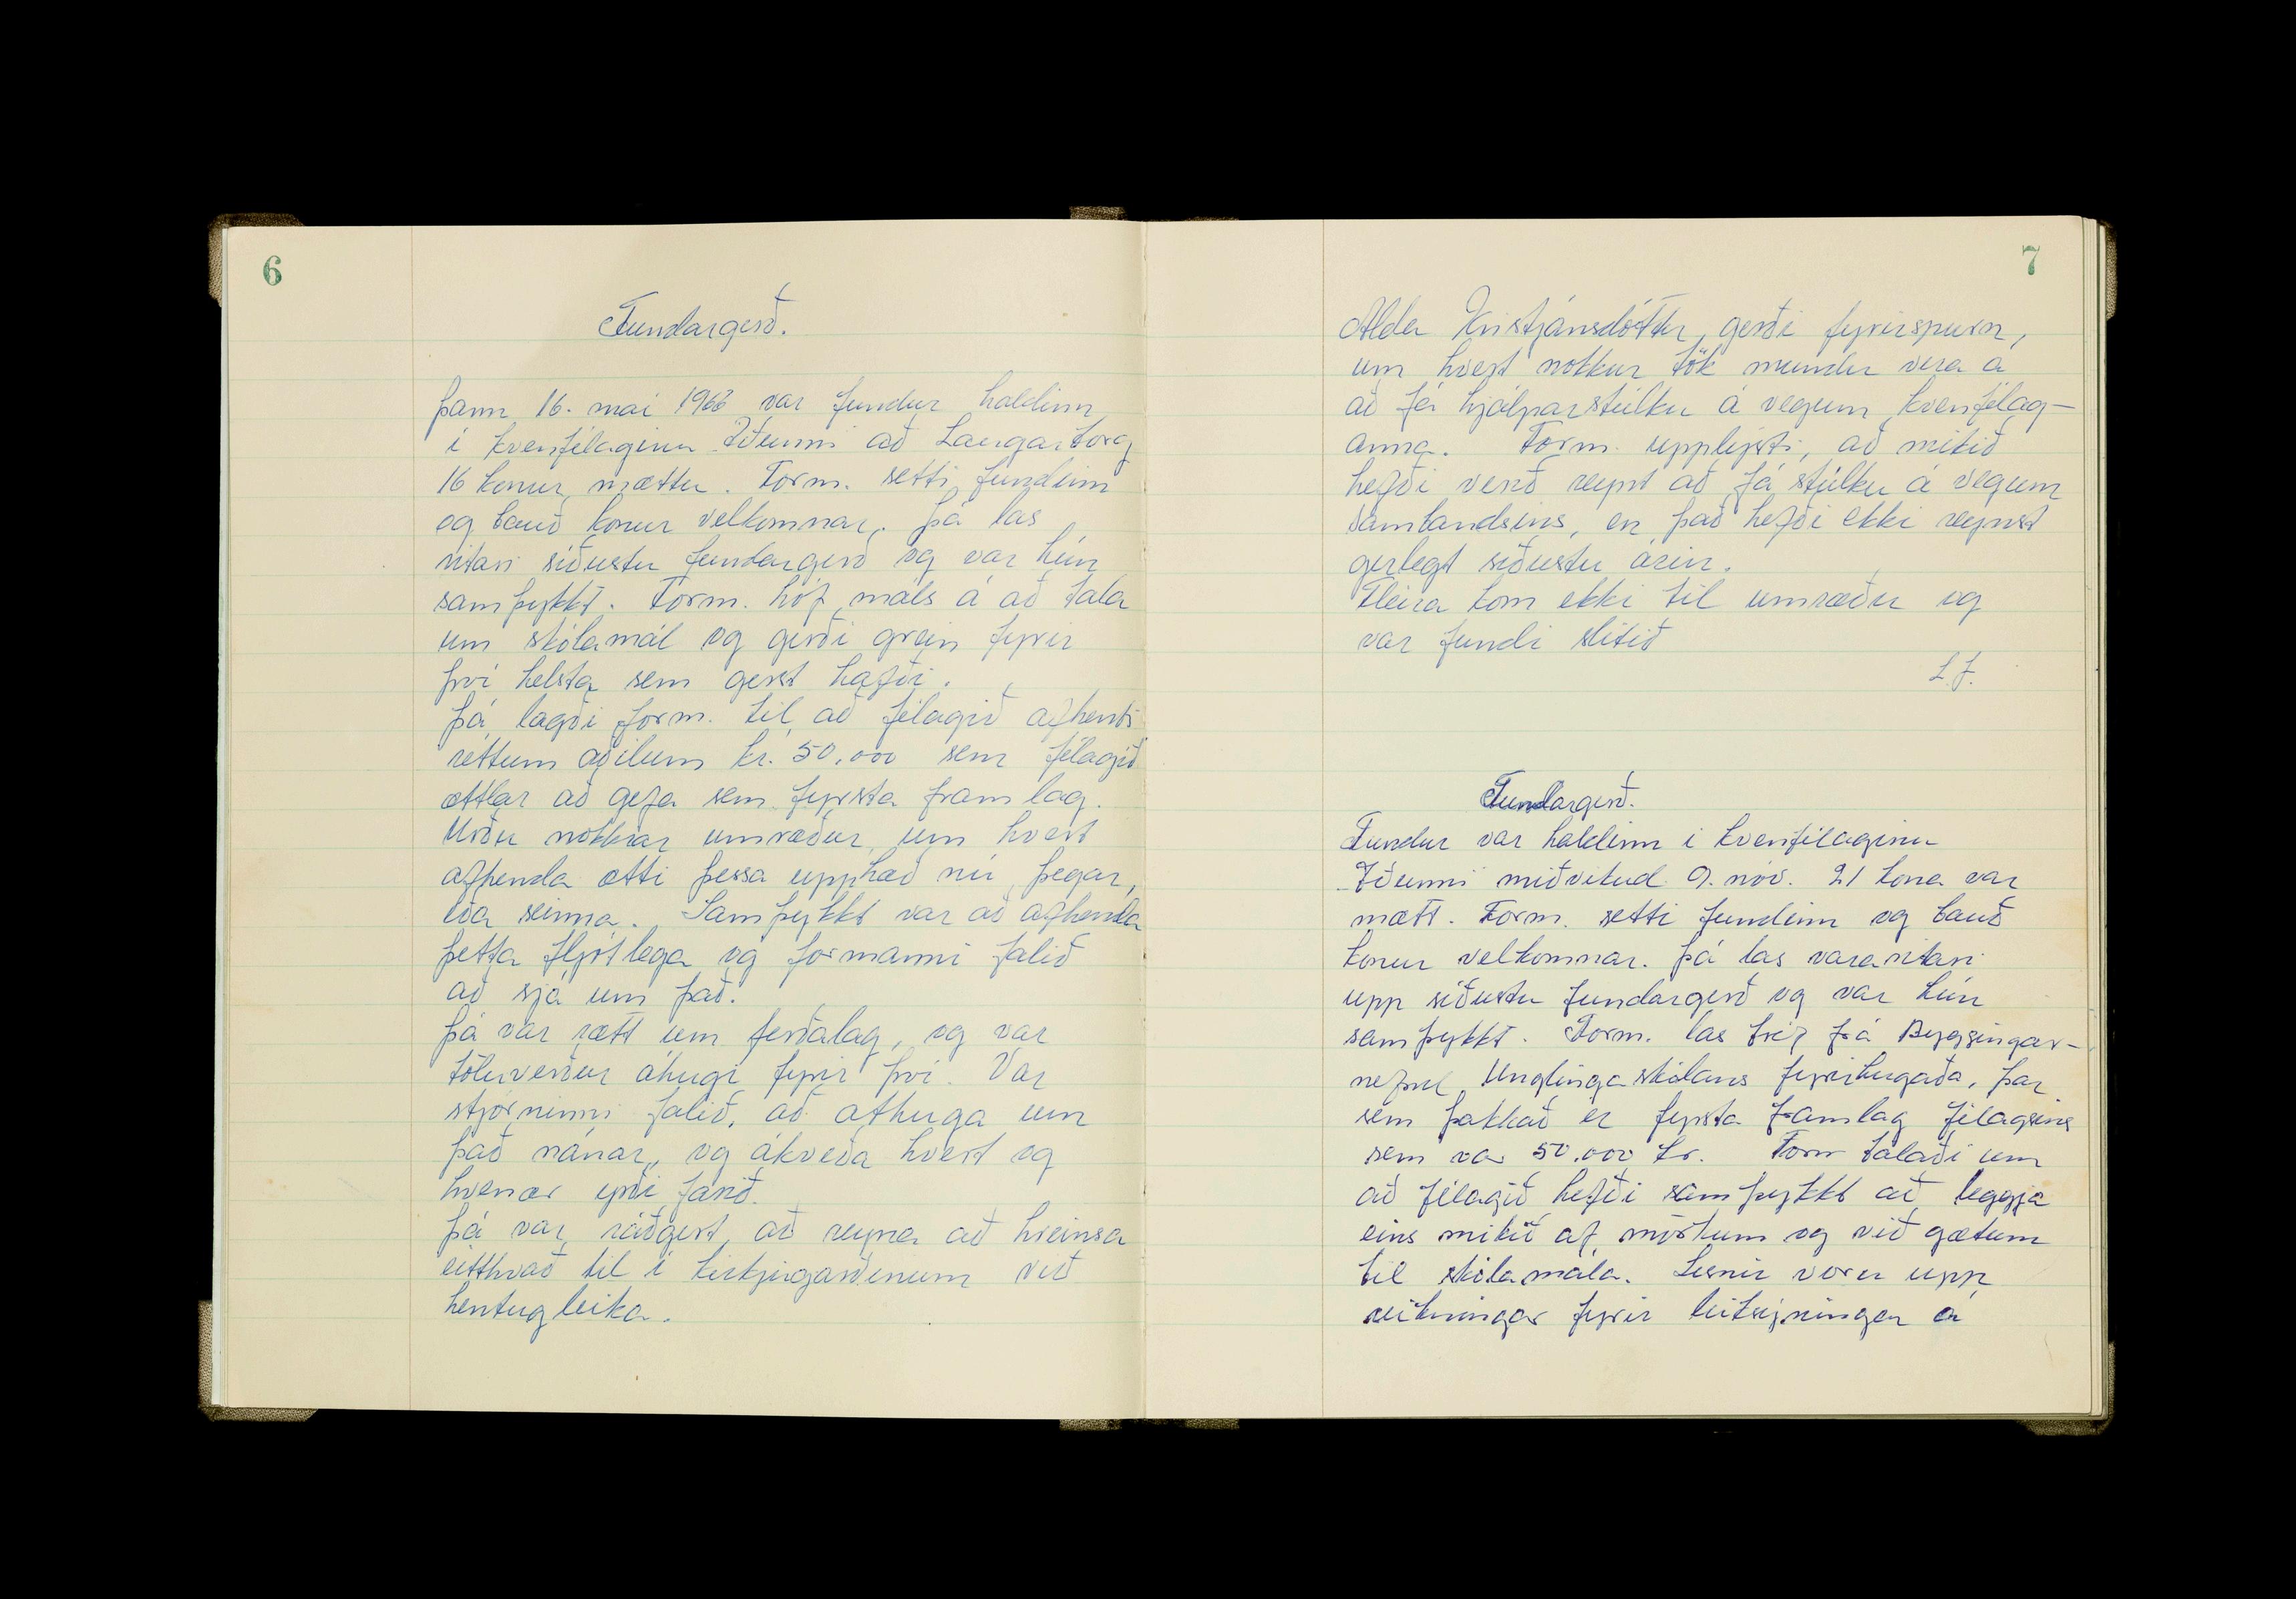 6
Fundargerð.
Þann 16. mai 1966 var fundur haldinn
i kvenfélaginu Iðunni að Laugarborg
16 konur mættu. Form. setti fundinn
og bauð konur velkomnar. Þá las
ritari síðustu fundargerð og var hún
samþykkt. Form. hóf máls á að tala
um skólamál og gerði grein fyrir
því helsta sem gerst hafði.
Þá lagði form. til að félagið afhenti
réttum aðilum kr. 50.000 sem félagið
ættlar að gefa sem fyrsta framlag.
Urðu nokkrar umræður um hvort
afhenda ætti þessa upphæð nú þegar,
eða seinna. Samþykkt var að afhenda
þetta fljótlega og formanni falið
að sjá um það.
Þá var rætt um ferðalag, og var
töluverður áhugi fyrir því. Var
stjórninni falið, að athuga um
það nánar, og ákveða hvert og
hvenær yrði farið.
Þá var ráðgert, að reyna að hreinsa
eitthvað til í kirkjugarðinum við
hentugleika.
7
Alda Kristjánsdóttir, gerði fyrirspurn,
um hvort nokkur tök mundu vera á
að fá hjálparstúlku á vegum kvenfélag-
anna. Form. upplýsti, að mikið
hefði verið reynt að fá stúlku á vegum
Sambandsins, en það hefði ekki reynst
gerlegt síðustu árin.
Fleira kom ekki til umræðu og
var fundi slitið
L.J.
Fundargerð.
Fundur var haldinn i kvenfélaginu
Iðunni miðvikud. 9. nóv. 21 kona var
mætt. Form. setti fundinn og bauð
konur velkomnar. Þá las vararitari
upp síðustu fundargerð og var hún
samþykkt. Form. las bréf frá Byggingar-
nefnd Unglingaskólans fyrirhugaða, þar
sem þakkað er fyrsta framlag félagsins
sem var 50.000 kr. Form talaði um
að félagið hefði samþykkt að leggja
eins mikið af mörkum og við gætum
til skólamála. Lesnir voru upp
reikningar fyrir leiksýningen á